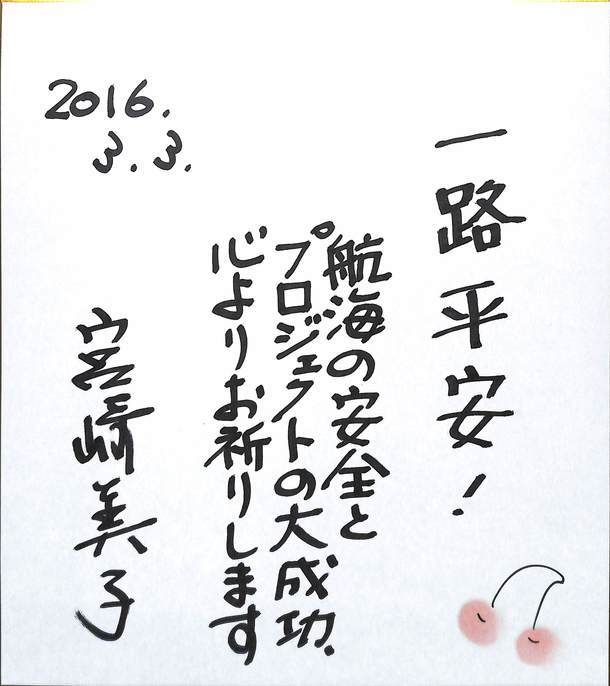 一路平安！
航海の安全と
プロジェクトの大成功、
心よりお祈りします
2016.
3.3.
宮崎美子